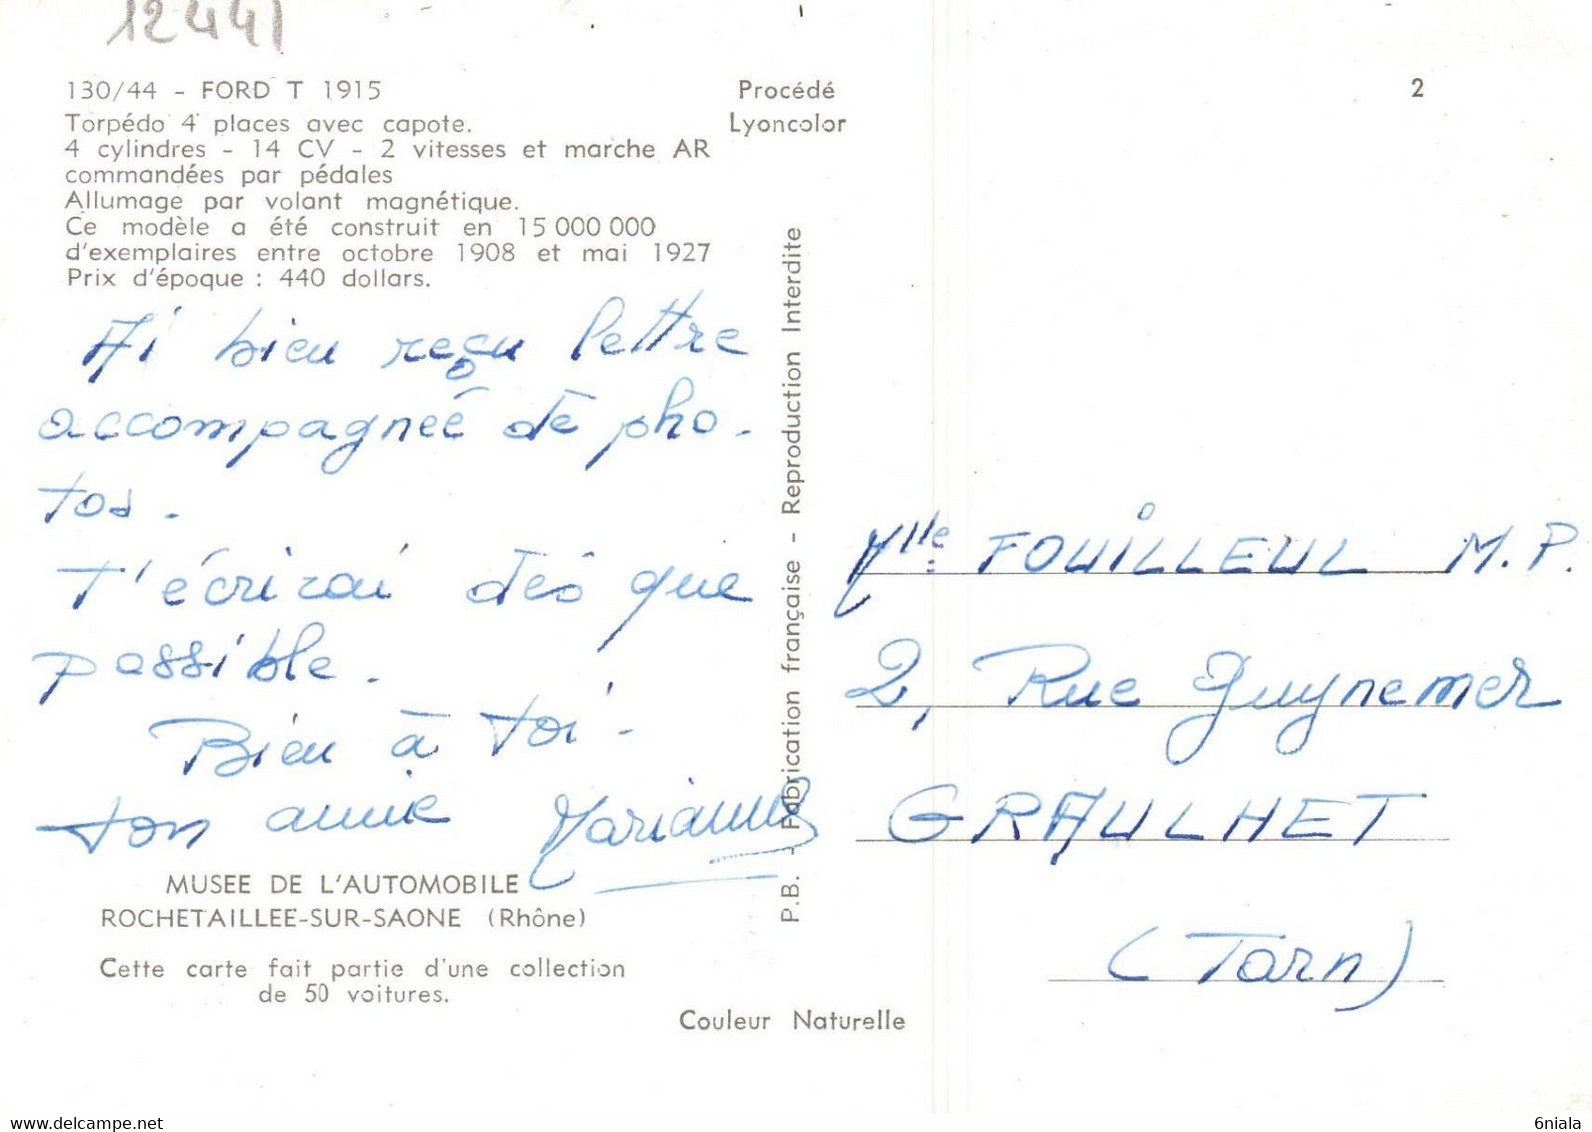 12441
130/44 - FORD T 1915
Torpédo 4 places avec capote.
4 cylindres - 14 CV - 2 vitesses et marche AR
commandées par pédales
Allumage par volant magnétique.
Ce modèle a été construit en 15 000 000
d'exemplaires entre octobre 1908 et mai 1927
Prix d'époque : 440 dollars.
Procédé
Lyoncolor
2
Ai bien reçu lettre
accompagneé de pho-
tos.
T'écrirai dès que
possible.
Bien à toi.
ton amie Marianne
MUSEE DE L'AUTOMOBILE
ROCHETAILLEE-SUR-SAONE (Rhône)
Cette carte fait partie d'une collection
de 50 voitures.
P.B. - Fabrication française - Reproduction Interdite
Couleur Naturelle
Mlle FOUILLEUL M.P.
2, Rue Guynemer
GRAULHET
(Tarn)
www.delcampe.net
6niala